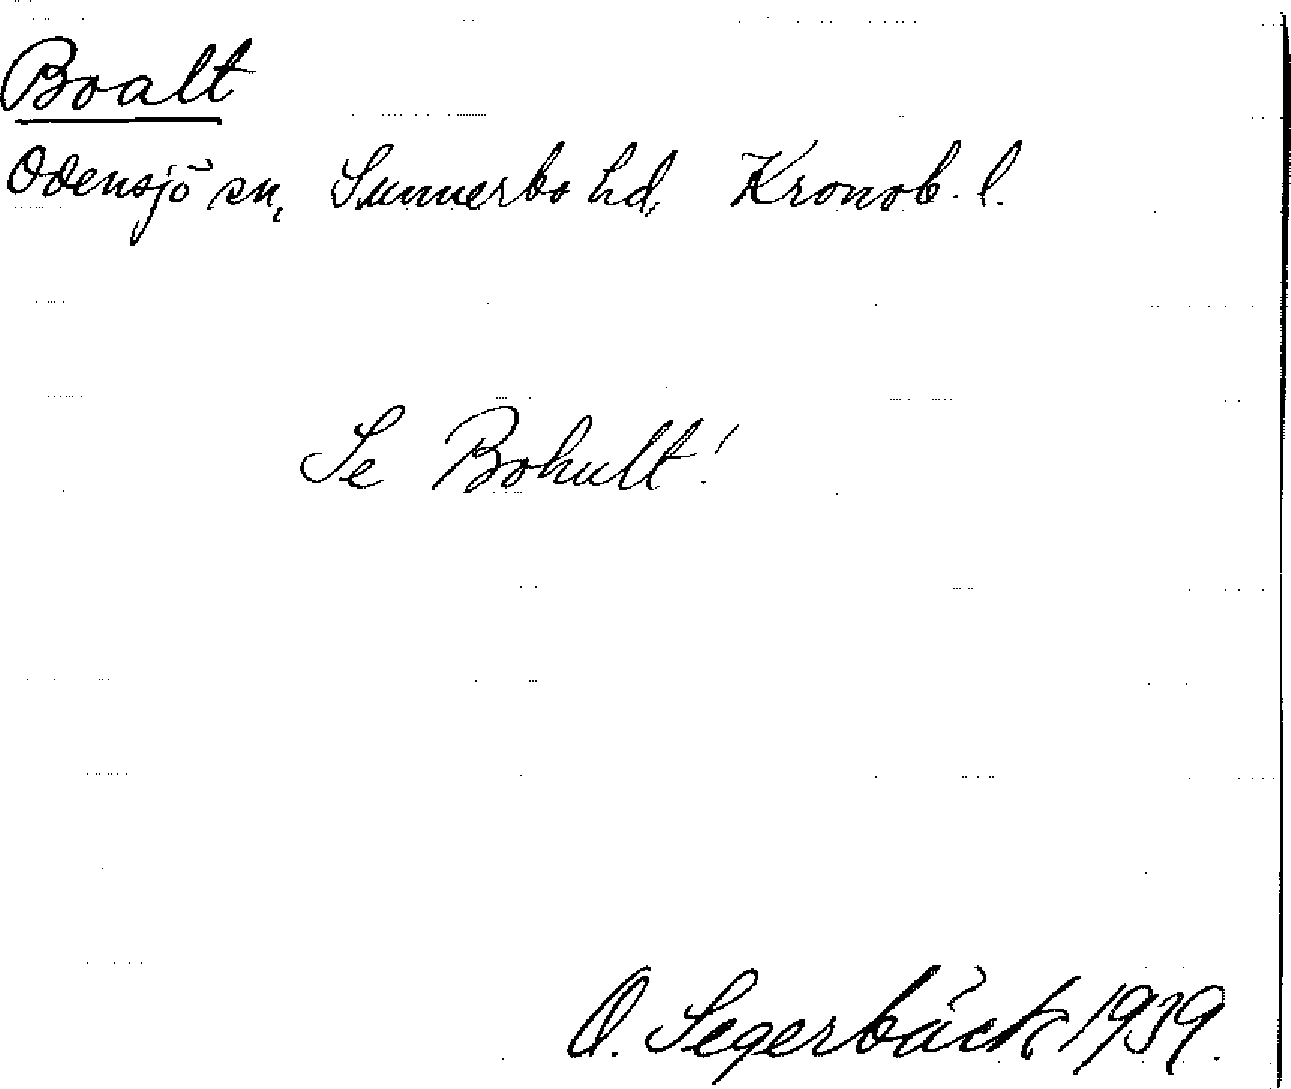 Boalt
Odensjö sn, Sunnerbo hd, Kronob. l.
Se Bohult!
O. Segerbäck 1939.